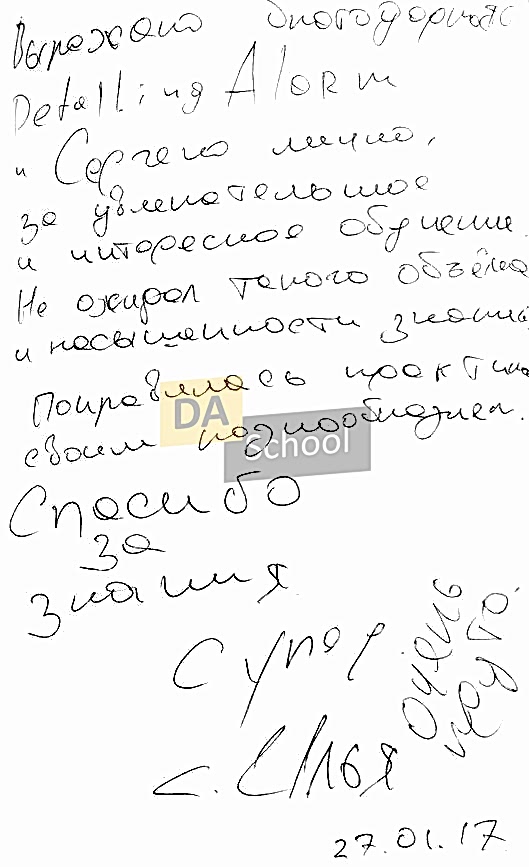 Выражаю благодарность
Detailing Alarm
и Сергею лично,
за увлекательное
и интересное обучение.
Не ожидал такого объёма
и насыщенности знаний
Понравилась практика
своим разнообразием.
DA
School
Спасибо
за
знания
Супер
очень
круто.
с. Илья
27.01.17